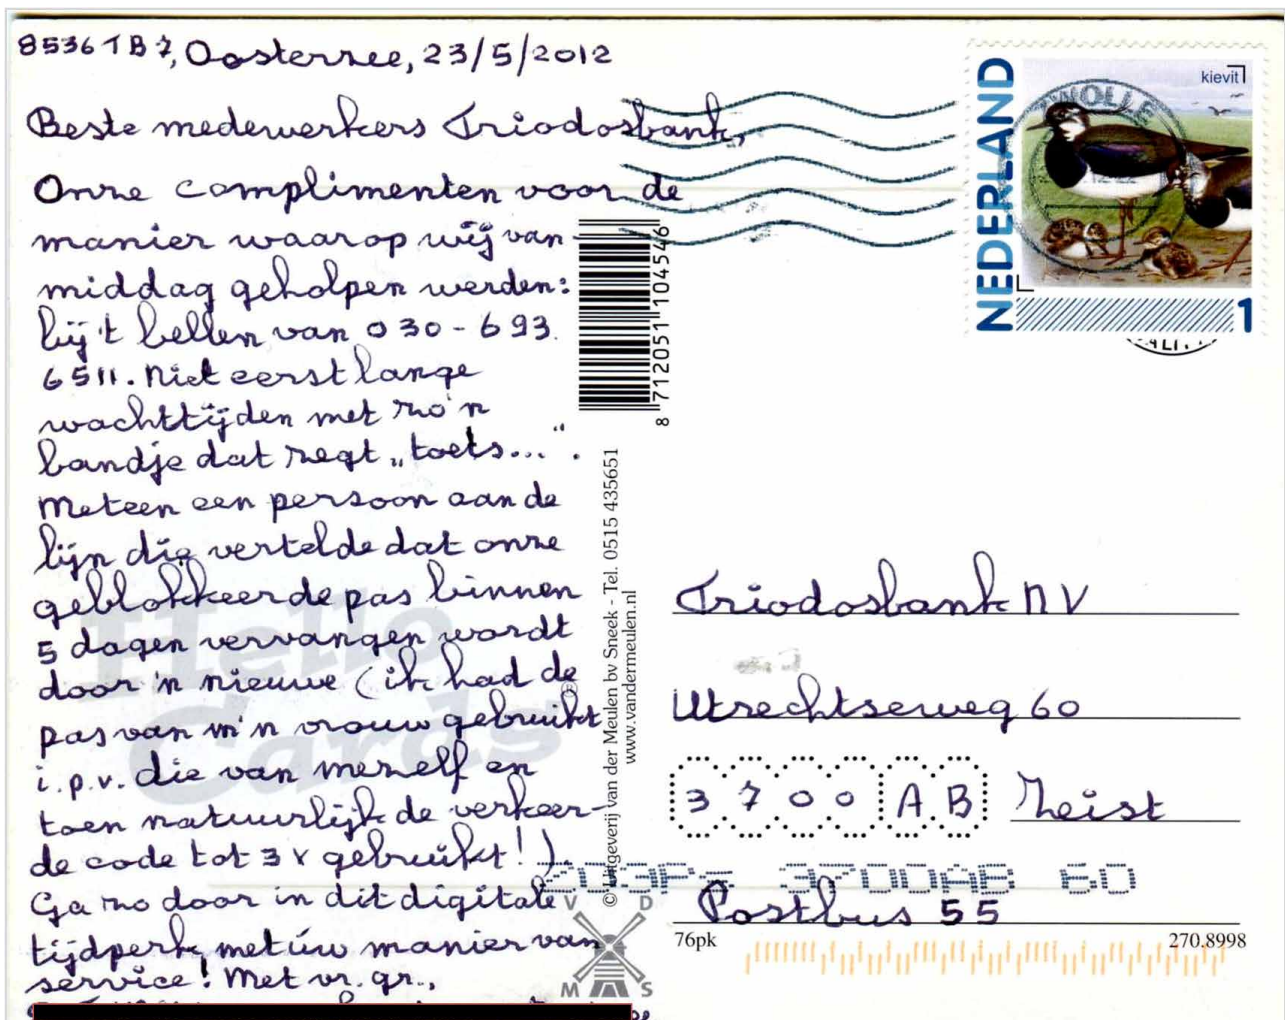 8536TB7, Oosterzee, 23/5/2012
Beste medewerkers Triodosbank,
Onze complimenten voor de
manier waarop wij van-
middag geholpen werden:
bij 't bellen van 030-693
6511. Niet eerst lange
wachttijden met zo'n
bandje dat zegt „toets...".
Meteen een persoon aan de
lijn die vertelde dat onze
geblokkeerde pas binnen
5 dagen vervangen wordt
door 'n nieuwe (ik had de
pas van m'n vrouw gebruikt
i.p.v. die van mezelf en
toen natuurlijk de verkeer-
de code tot 3 x gebruikt!).
Ga zo door in dit digitale
tijdperk met úw manier van
service! Met vr. gr.,
Hello
Cards
®
8 712051 104546
© Uitgeverij van der Meulen bv Sneek - Tel. 0515 435651
www.vandermeulen.nl
V D
M S
NEDERLAND
kievit
1
ZWOLLE
Triodosbank NV
Utrechtseweg 60
3700 AB Zeist
3700AB 60
Postbus 55
76pk
270.8998